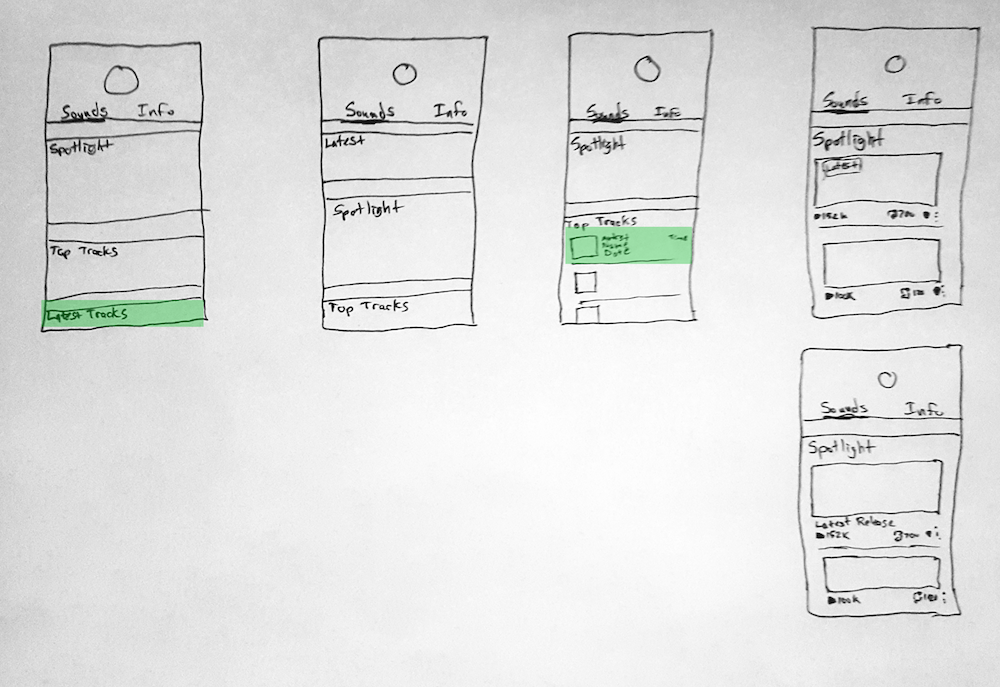 Sounds Info
Spotlight
Top Tracks
Latest Tracks
Sounds Info
Latest
Spotlight
Top Tracks
Sounds Info
Spotlight
Top Tracks
Artist Time
Date
Sounds Info
Spotlight
Latest
152K 700
100K
Sounds Info
Spotlight
Latest Release
152K 700
100K